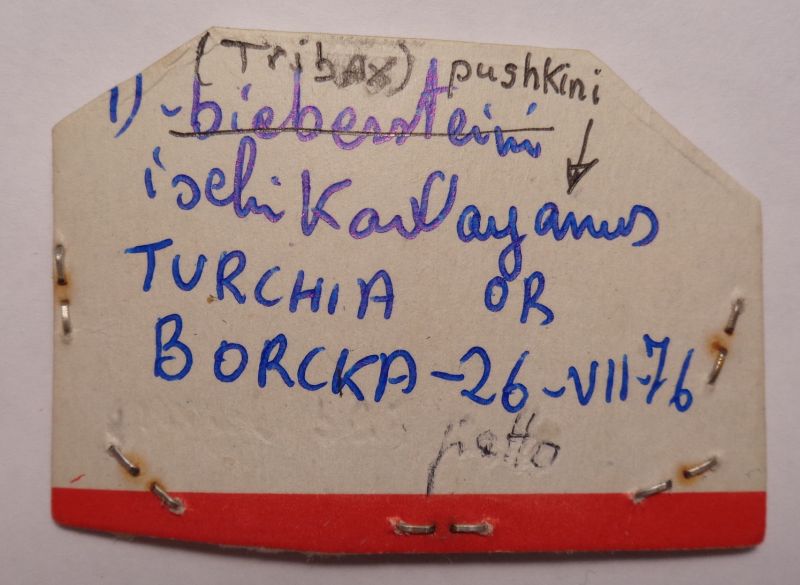 (Tribax) pushkini
1) - biebersteini
ischikaulayanus
TURCHIA OR
BORCKA - 26 - VII - 76
fatto